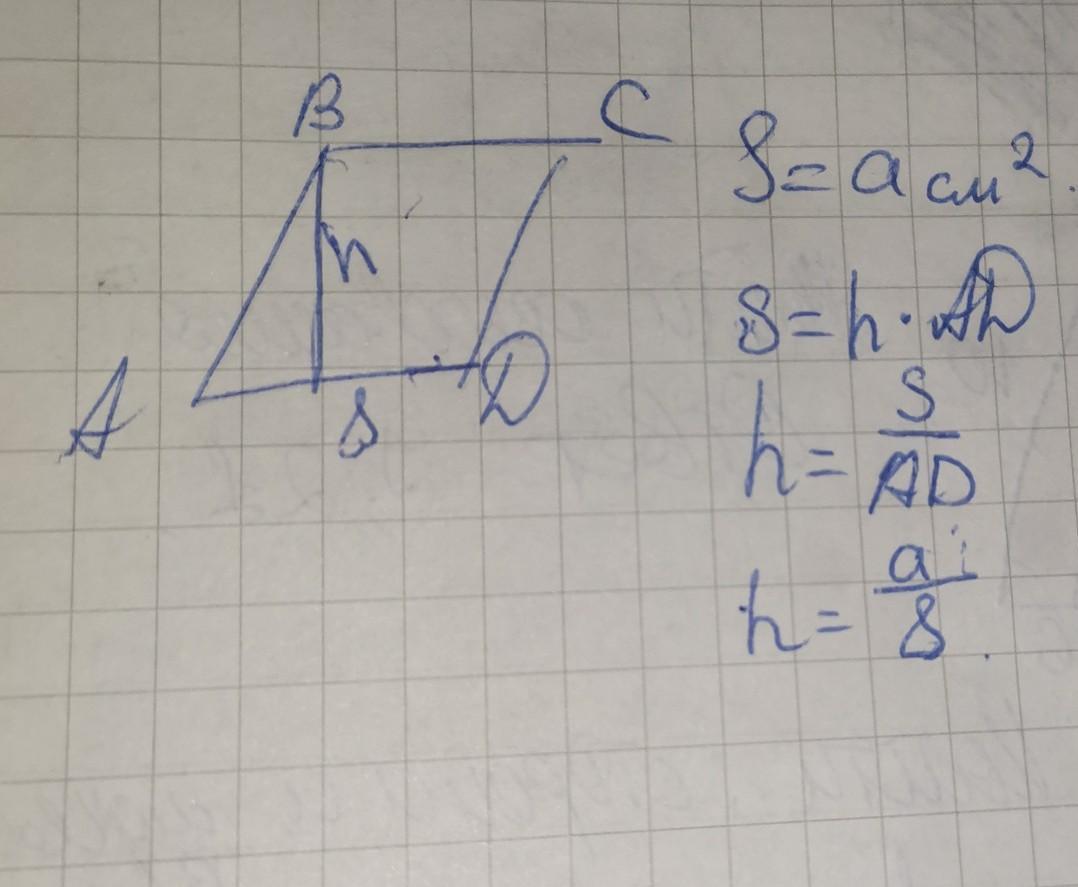 B C
h
A 8 D
S = a см².
S = h · AD
h = S/AD
h = a/8.